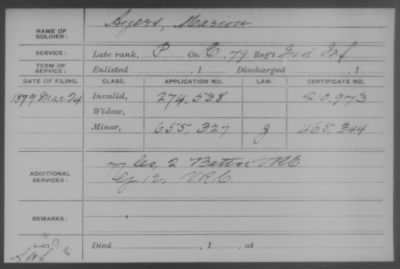 NAME OF SOLDIER: Ayers, Marion
SERVICE: Late rank, P Co. C, 79 Reg't Ind Inf
TERM OF SERVICE: Enlisted , 1 Discharged , 1
DATE OF FILING. CLASS. APPLICATION NO. LAW. CERTIFICATE NO.
1879 Mar 24 Invalid, 274,538
Widow,
Minor, 655,327 g 465,344
ADDITIONAL SERVICES: 77 Co, 2 Batt'n VRC
G 12, VRC
REMARKS:
Died , 1 , at